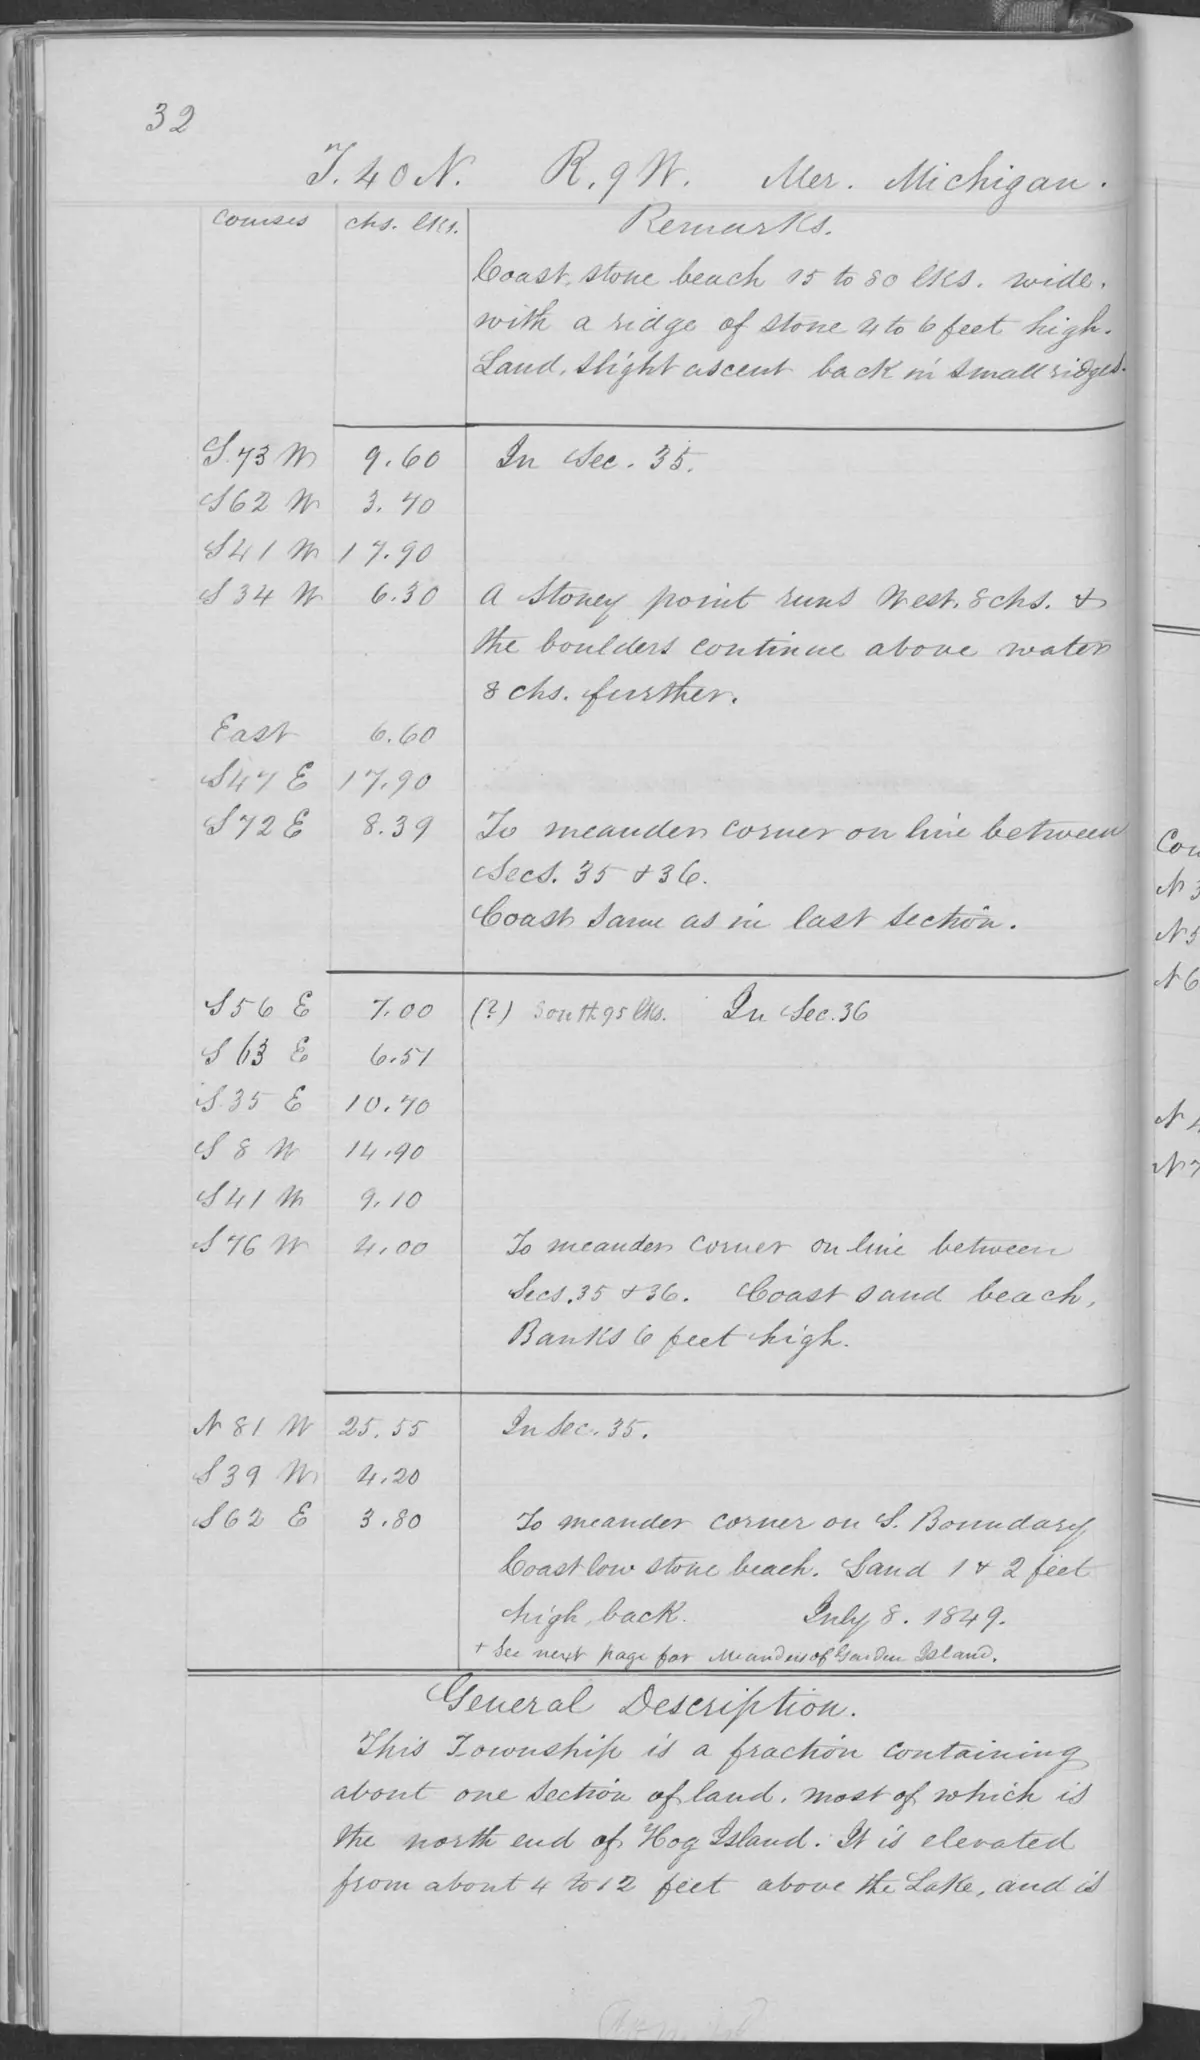 32
T. 40 N. R. 9 W. Mer. Michigan.
Courses chs. lks. Remarks.
Coast, stone beach 15 to 80 lks. wide.
with a ridge of stone 4 to 6 feet high.
Land, slight ascent back in small ridges.
S. 73 W 9.60 In Sec. 35.
S 62 W 3.70
S 41 W 17.90
S 34 W 6.30 A Stoney point runs West. 8 chs. &
the boulders continue above water
8 chs. further.
East 6.60
S 47 E 17.90
S 72 E 8.39 To meander corner on line between
Secs. 35 & 36.
Coast same as in last section.
S 56 E 7.00 (?) South 95 lks. In Sec. 36
S 63 E 6.51
S. 35 E 10.70
S 8 W 14.90
S 41 W 9.10
S 76 W 4.00 To meander corner on line between
Secs. 35 & 36. Coast sand beach,
Banks 6 feet high.
N 81 W 25.55 In Sec. 35.
S 39 W 4.20
S 62 E 3.80 To meander corner on S. Boundary
Coast low stone beach. Land 1 & 2 feet
high back. July 8. 1849.
+ See next page for Meanders of Garden Island.
General Description.
This Township is a fraction containing
about one section of land. most of which is
the north end of Hog Island. It is elevated
from about 4 to 12 feet above the Lake, and is
Cou
N 3
N 5
N 6
N 4
N 7